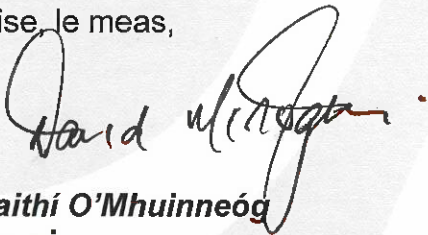 ise, le meas,
David
aithí O'Mhuinneóg